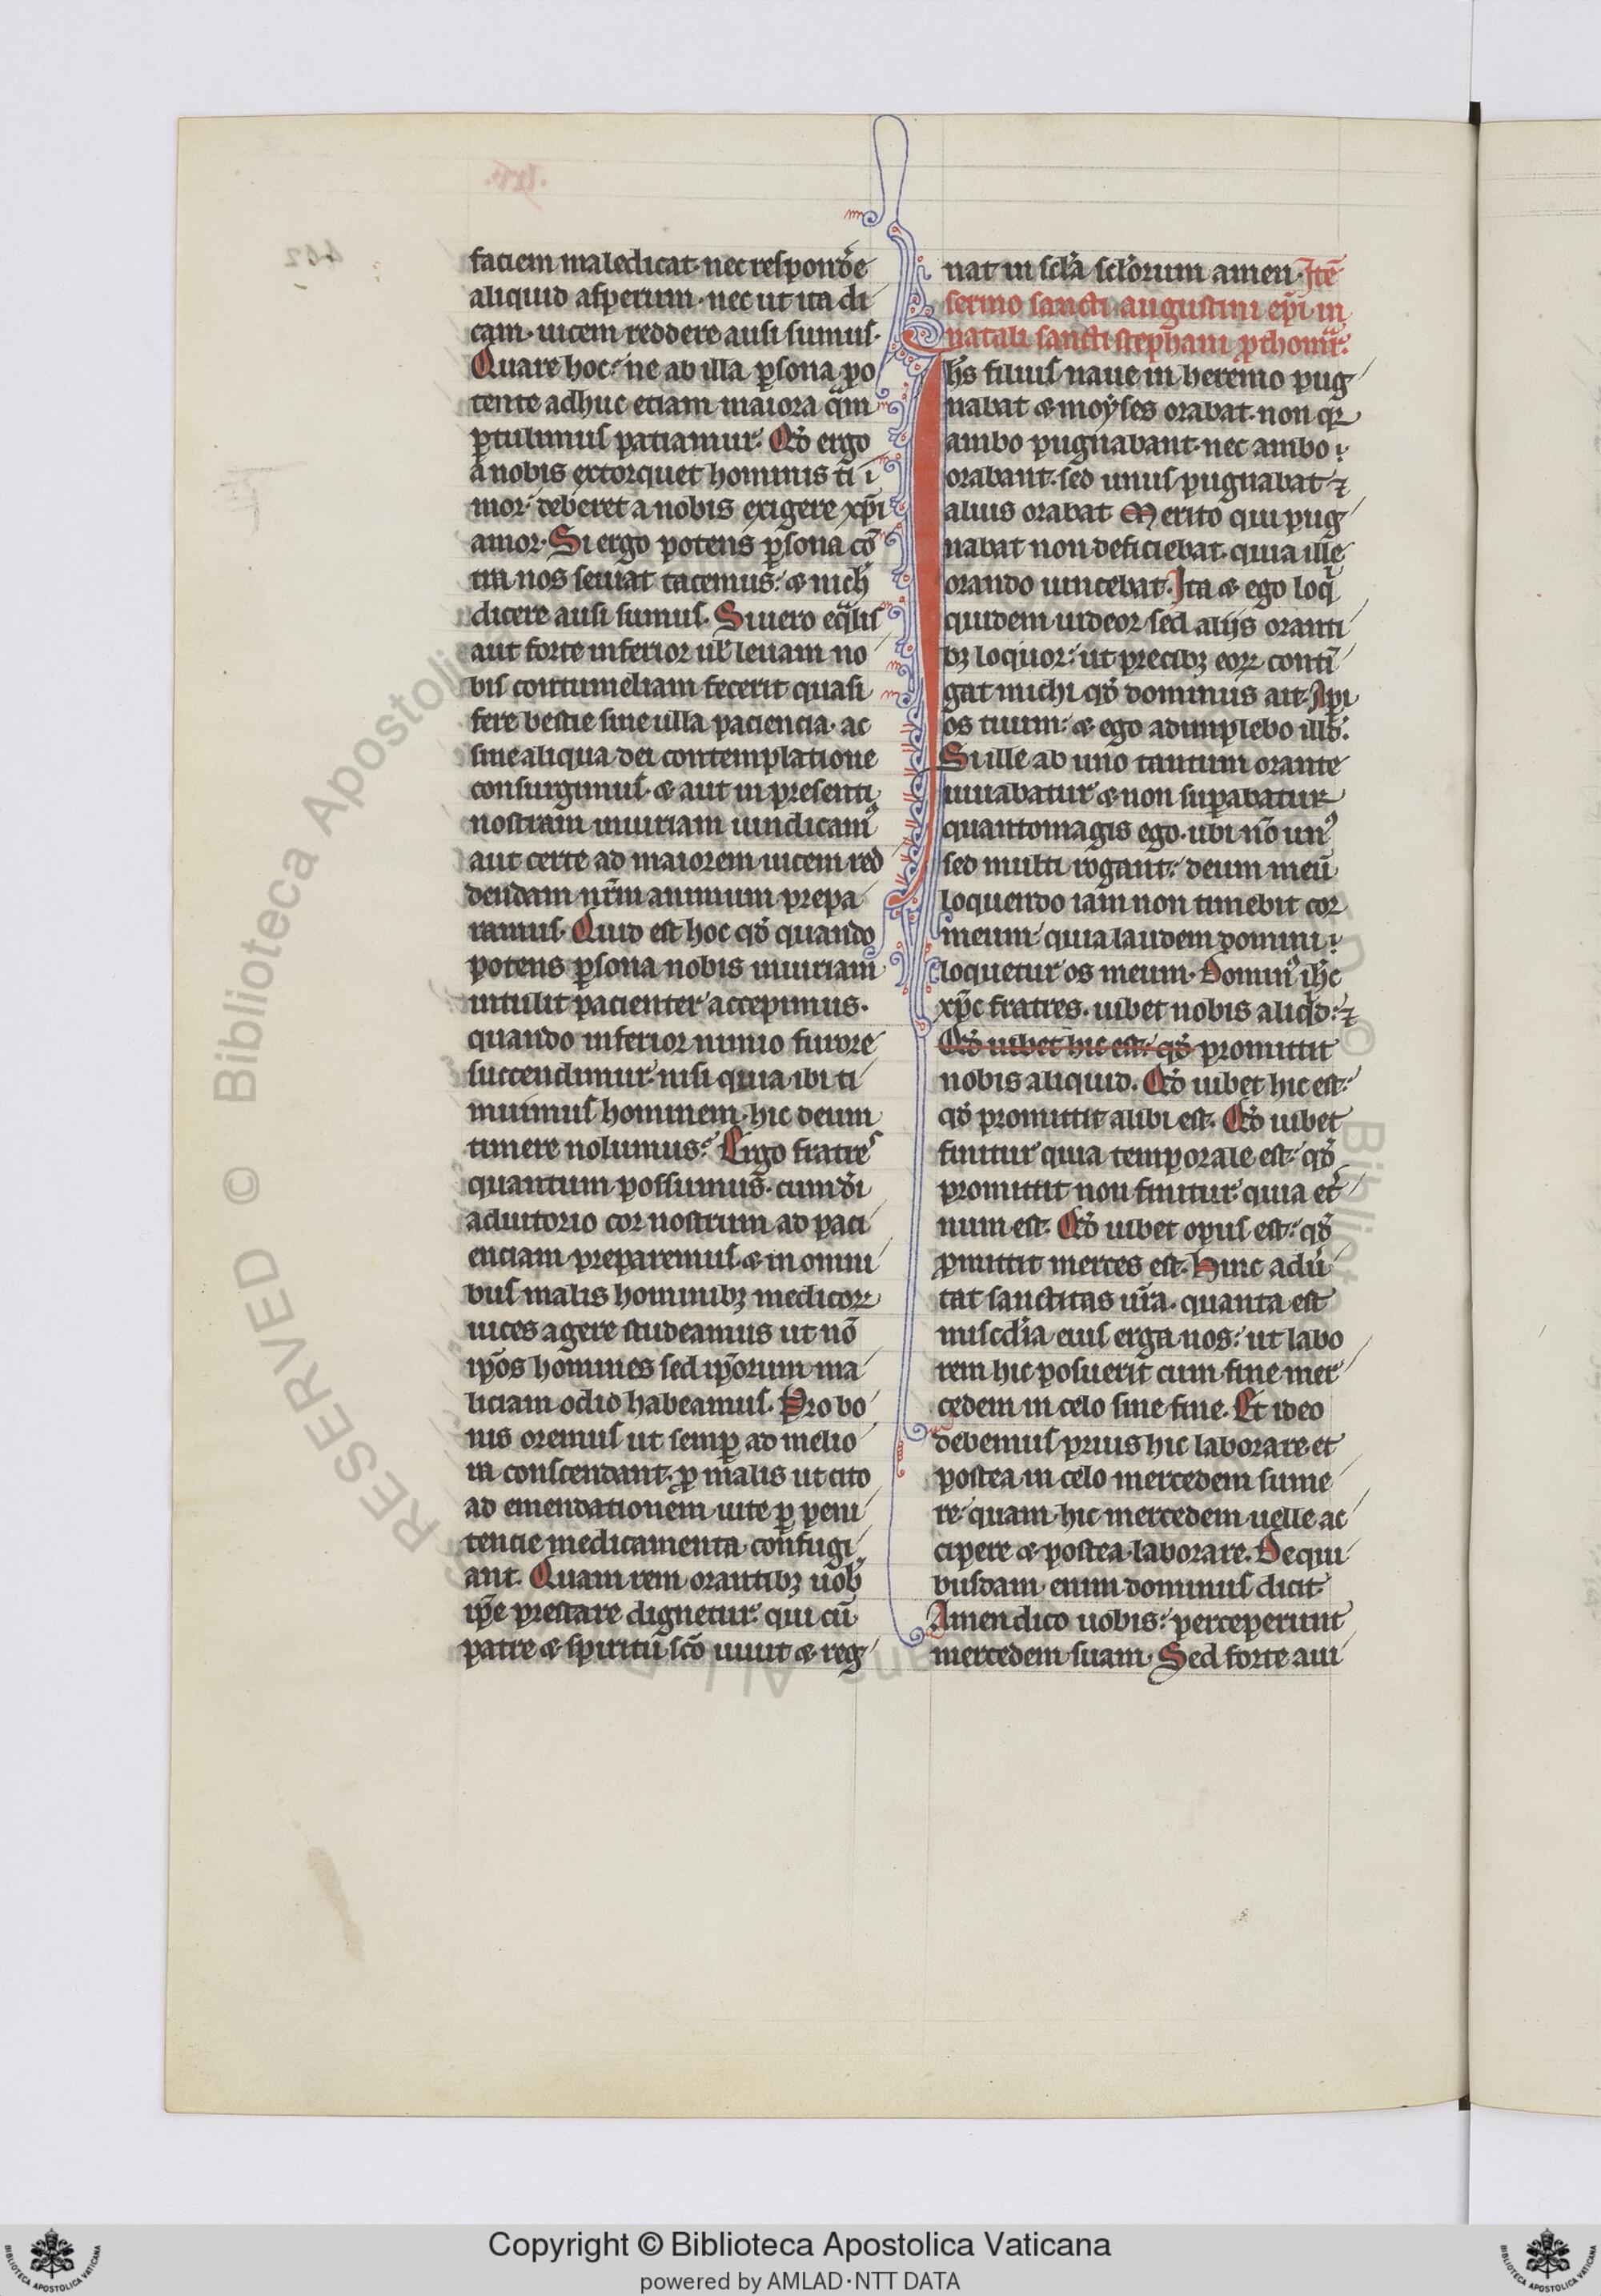 faciem maledicat· nec respond̾e
aliquid asperum· nec ut ita di
cam· uicem reddere ausi sumus·
Quare hoc: ne ab illa ꝑsona po
tente adhuc etiam maiora qͣm
ꝑtulimus patiamur. Qd̾ ergo
a nobis extorquet hominis ti
mor: deberet a nobis exigere xp̄i
amor· Si ergo potens ꝑsona cō
tra nos seuiat tacemus: & nich̾
dicere ausi sumus. Si uero eqͣlis
aut forte inferior ul̾ leuam no
bis contumeliam fecerit quasi
fere bestie sine ulla paciencia· ac
sine aliqua dei contemplatione
consurgimus· & aut in presenti
nostram iniuriam uindicamꝰ
aut certe ad maiorem uicem red
dendam nr̄m animum prepa
ramus. Quid est hoc qd̾ quando
potens ꝑsona nobis iniuriam
intulit pacienter accepimus·
quando inferior nimio furore
succendimur· nisi quia ibi ti
muimus hominem· hic deum
timere nolumus: Ergo fratres
quantum possumus· cum dī
adiutorio cor nostrum ad paci
enciam preparemus & in omni
bus malis hominibꝫ medicoꝝ
uices agere studeamus ut nō
ip̄os homines sed ip̄orum ma
liciam odio habeamus. Pro bo
nis oremus ut semꝑ ad melio
ra conscendant· ꝓ malis ut cito
ad emendationem uite ꝑ peni
tencie medicamenta confugi
ant. Quam rem orantibꝫ uob̾
ip̄e prestare dignetur qui cū
patre & spiritu sc̄o uiuit & reg
nat in scl̾a scl̾orum amen· Itē
sermo sancti augustini ep̄i in
natali sancti stephani ꝓthom̄r̄.
Ih̄s filius naue in heremo pug
nabat & moyses orabat· non qꝛ
ambo pugnabant· nec ambo
orabant· sed unus pugnabat ⁊
alius orabat Merito qui pug
nabat non deficiebat· quia ille
orando uincebat. Ita & ego loqͥ
quidem uideor sed aliis oranti
bꝫ loquor: ut precibꝫ eoꝝ conti̅
gat michi qd̾ dominus ait. Api
os tuum: & ego adimplebo illd̾.
Si ille ab uno tantum orante
iuuabatur & non suꝑabatur
quanto magis ego· ubi nō unꝰ
sed multi rogant: deum meū
loquendo iam non timebit cor
meum quia laudem domini
loquetur os meum· Dominꝰ ih̄c
xp̄c fratres· iubet nobis aliqͥd: ⁊
Qd̾ iubet hic est: qd̾ promittit
nobis aliquid. Qd̾ iubet hic est:
qd̾ promittit alibi est. Qd̾ iubet
finitur quia temporale est: qd̾
promittit non finitur quia et̾
num est. Qd̾ iubet opus est: qd̾
ꝓmittit merces est. Hinc adū
tat sanctitas ur̄a· quanta est
miscd̾ia eius erga nos: ut labo
rem hic posuerit cum fine mer
cedem in celo sine fine. Et ideo
debemus prius hic laborare et
postea in celo mercedem sume
re· quam hic mercedem uelle ac
cipere & postea laborare. De qui
busdam enim dominus dicit
Amen dico uobis: perceperunt
mercedem suam. Sed forte aui
Copyright © Biblioteca Apostolica Vaticana
powered by AMLAD·NTT DATA